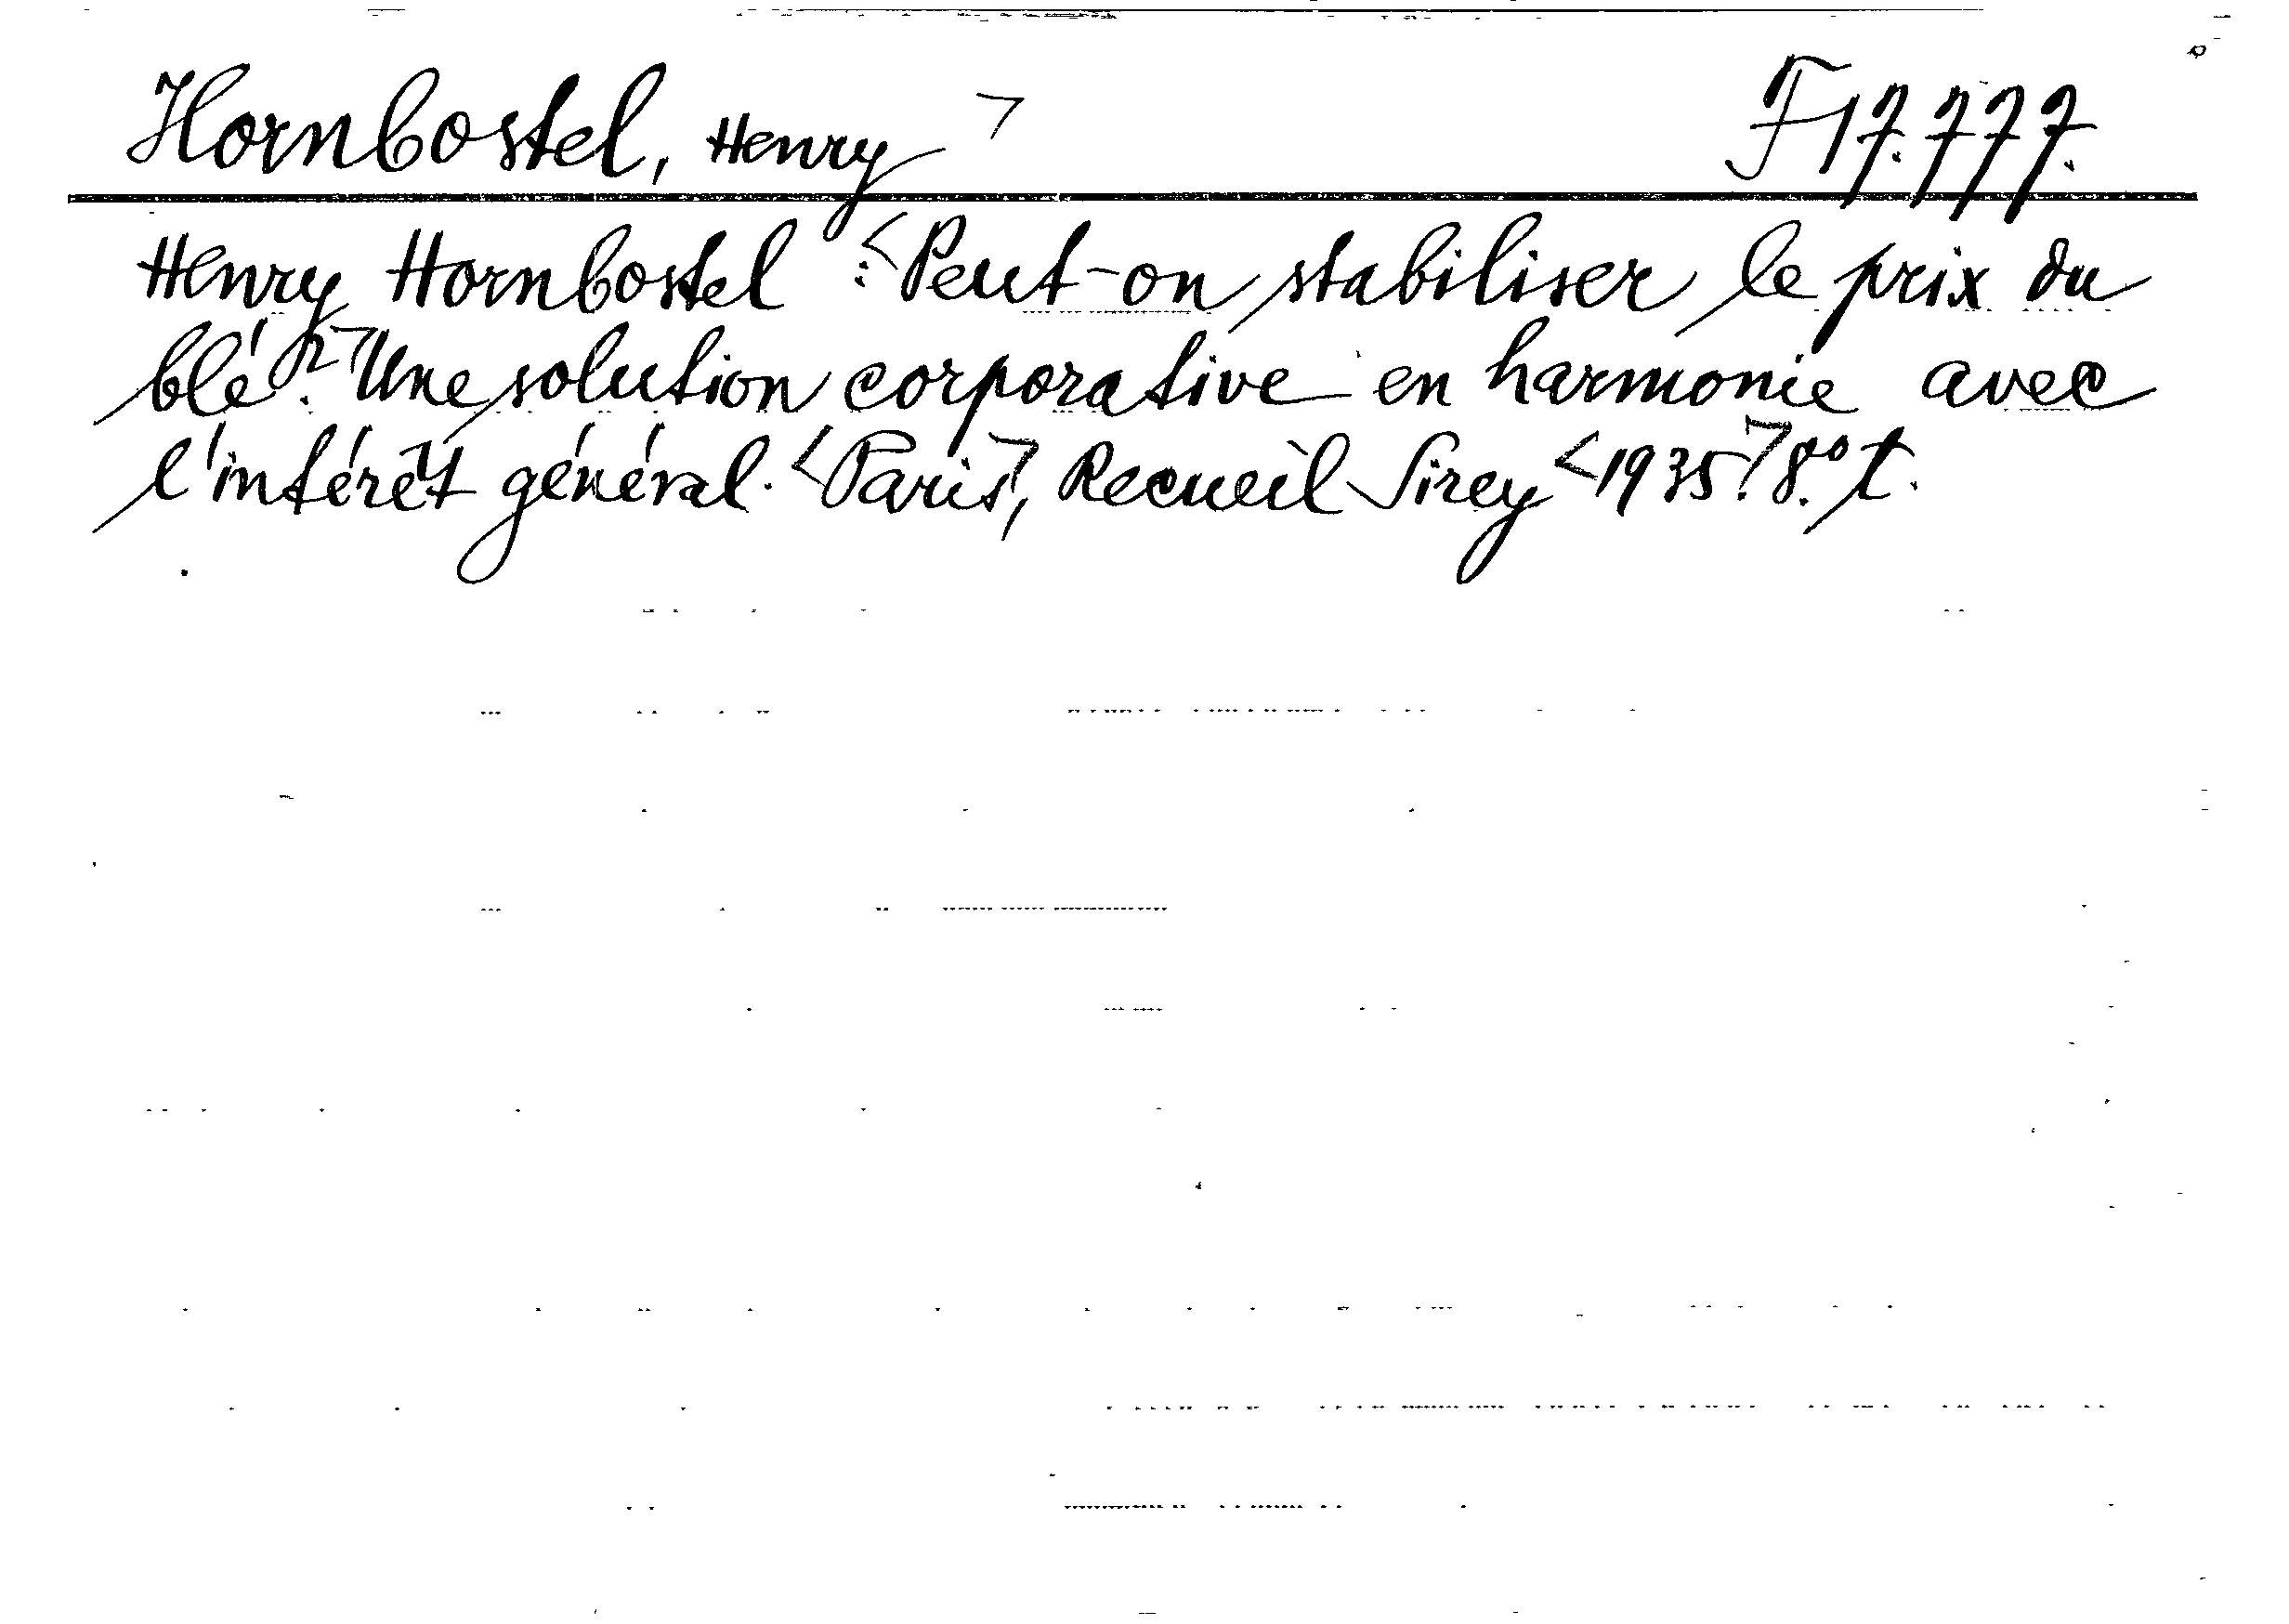 Hornbostel, Henry F 17.777.
Henry Hornbostel : Peut-on stabiliser le prix du
blé? Une solution corporative en harmonie avec
l'intérêt général. Paris, Recueil Sirey 1935. 8.° t.